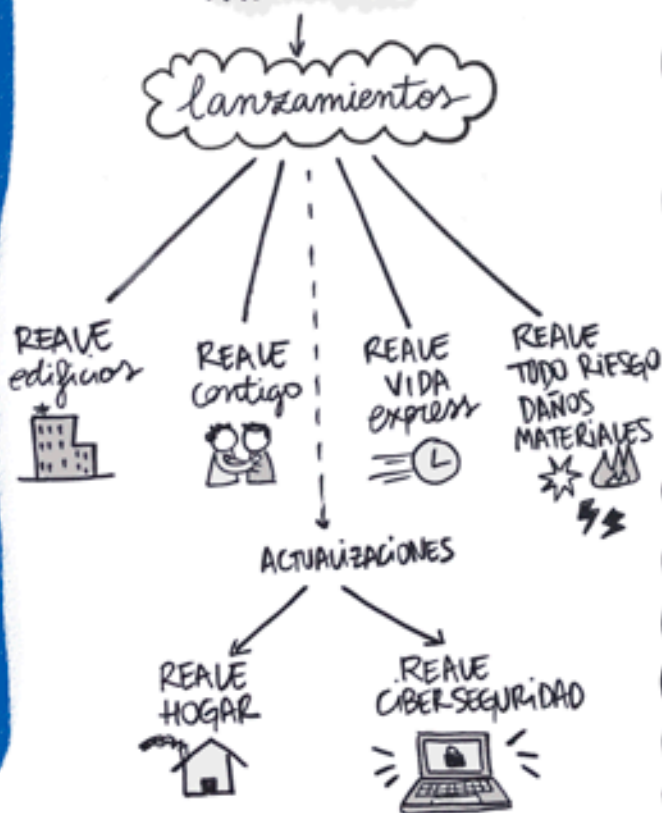 lanzamientos
REALE
edificios
REALE
contigo
REALE
VIDA
express
REALE
TODO RIESGO
DAÑOS
MATERIALES
ACTUALIZACIONES
REALE
HOGAR
REALE
CIBERSEGURIDAD